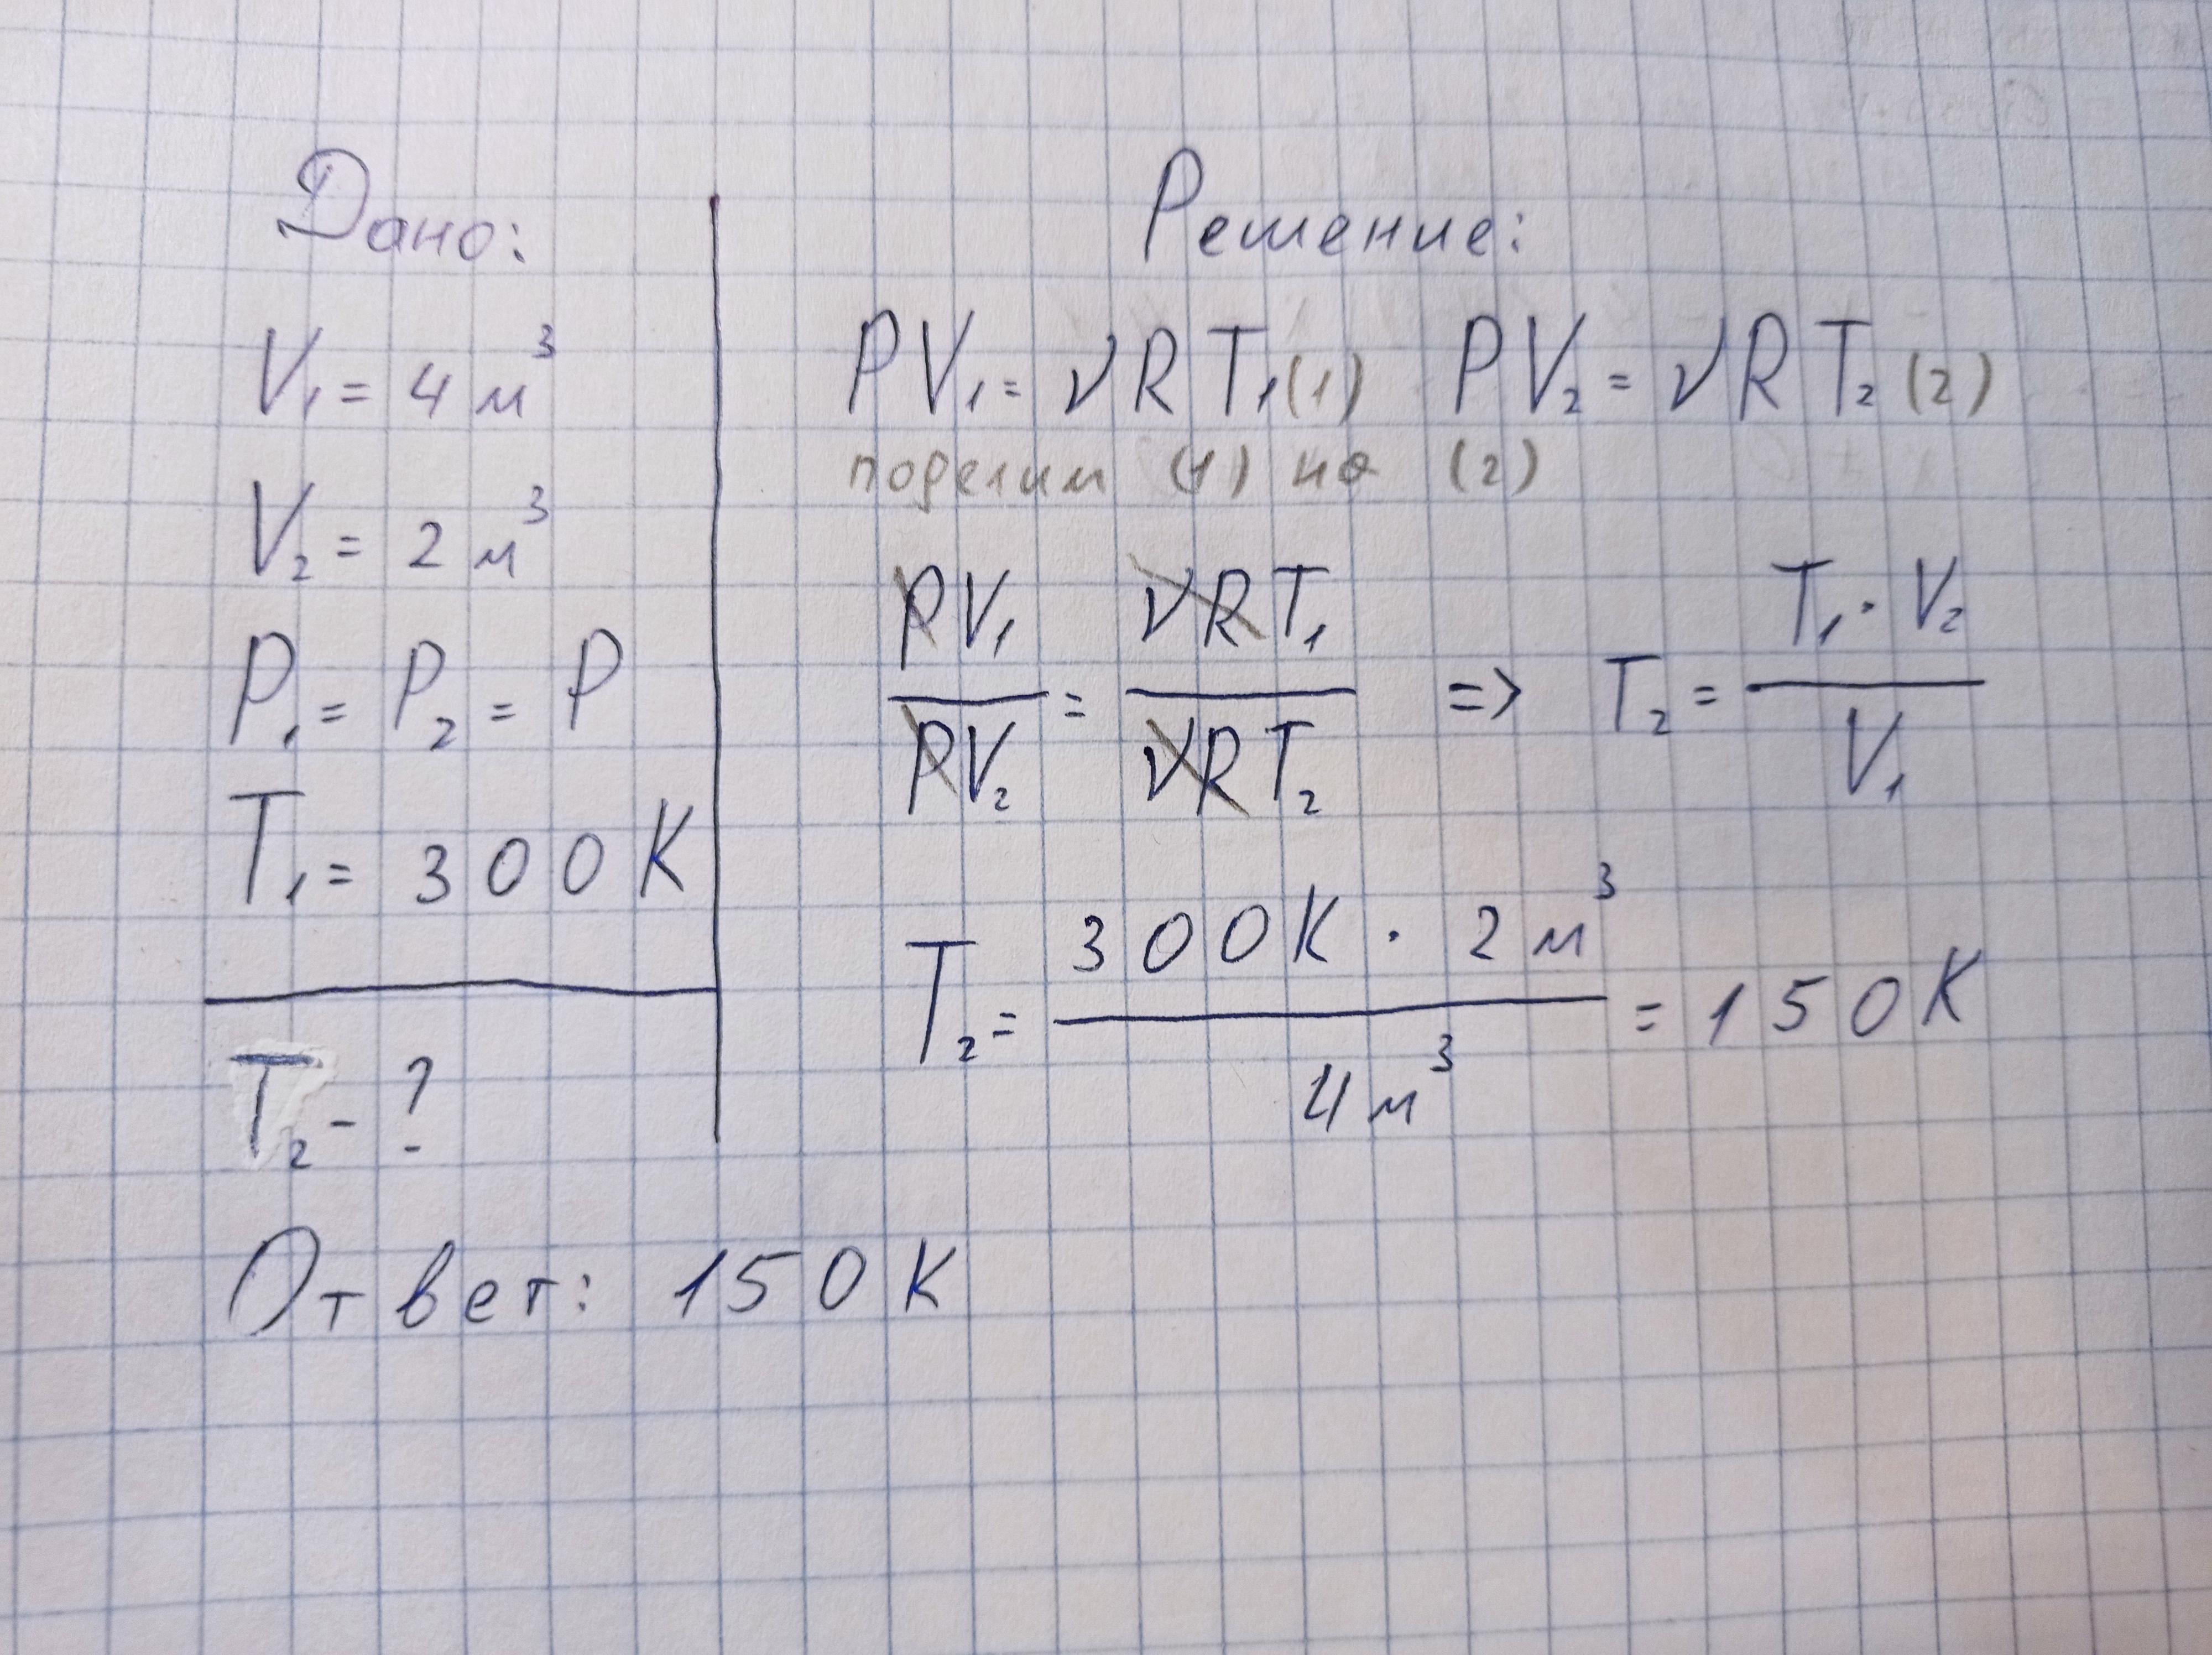 Дано:
V₁ = 4 м³
V₂ = 2 м³
P₁ = P₂ = P
T₁ = 300 К
T₂ - ?
Решение:
PV₁ = νRT₁ (1) PV₂ = νRT₂ (2)
поделим (1) на (2)
PV₁/PV₂ = νRT₁/νRT₂ => T₂ = T₁ · V₂/V₁
T₂ = 300К · 2 м³/4 м³ = 150 К
Ответ: 150 К